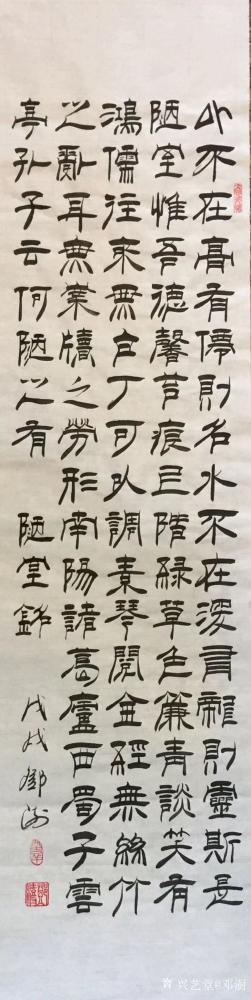 山不在高有僊則名水不在深有龍則靈斯是
陋室惟吾德馨苔痕上階綠草色簾青談笑有
鴻儒往來無白丁可以調素琴閱金經無絲竹
之亂耳無案牘之勞形南陽諸葛廬西蜀子雲
亭孔子云何陋之有 陋室銘
戊戌鄧澍
兴艺堂@邓澍